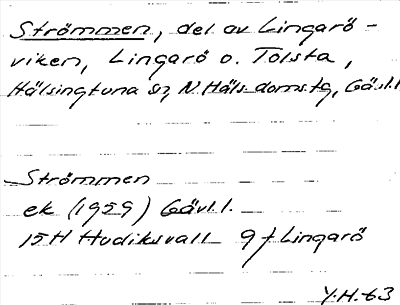 Strömmen, del av Lingarö-
viken, Lingarö o. Tolsta,
Hälsingtuna sn, N. Häls. doms.tg, Gävl.l
Strömmen
ek (1959) Gävl.l.
15H Hudiksvall 9f Lingarö
Y.H.63